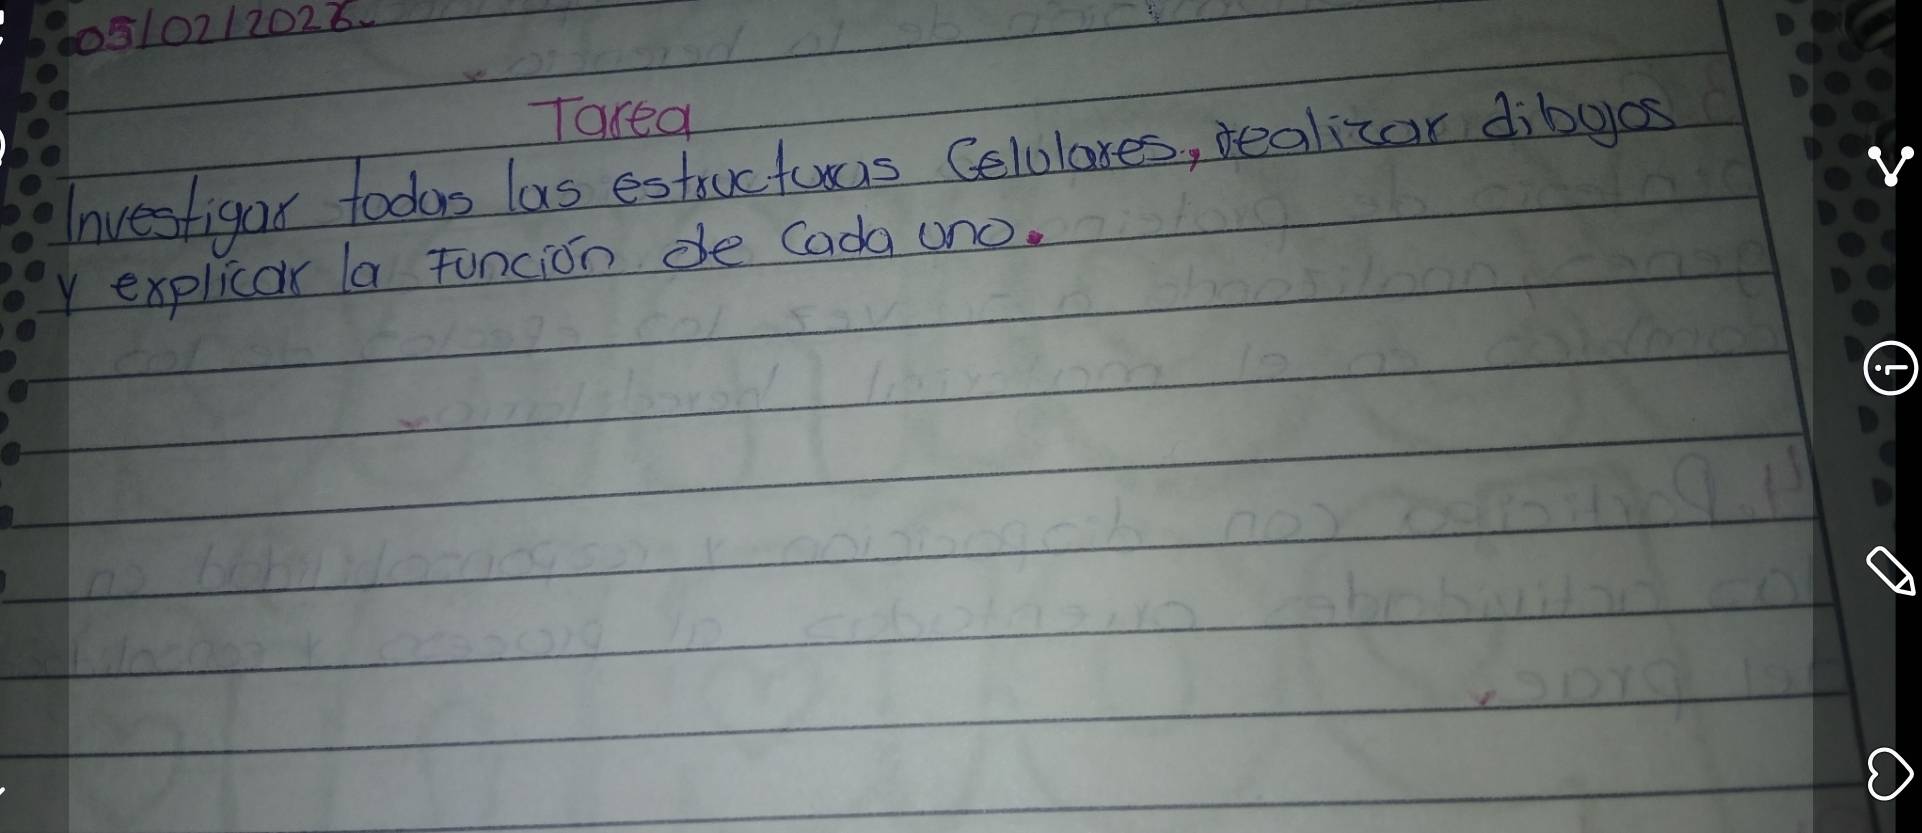 05/02/2026.
Tarea
Investigar todas las estructuras Celulares, realizar dibujos
y explicar la Función de Cada uno.